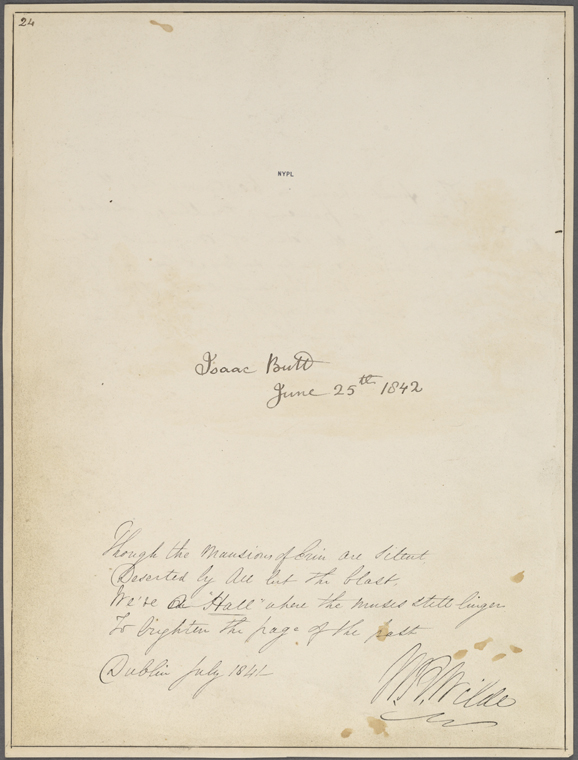 24
NYPL
Isaac Butt
June 25th 1842
Though the Mansions of Erin are silent
Deserted by All but the blast.
We've a "Hall" where the muses still linger
To brighten the page of the past
Dublin July 1841
W R Wilde